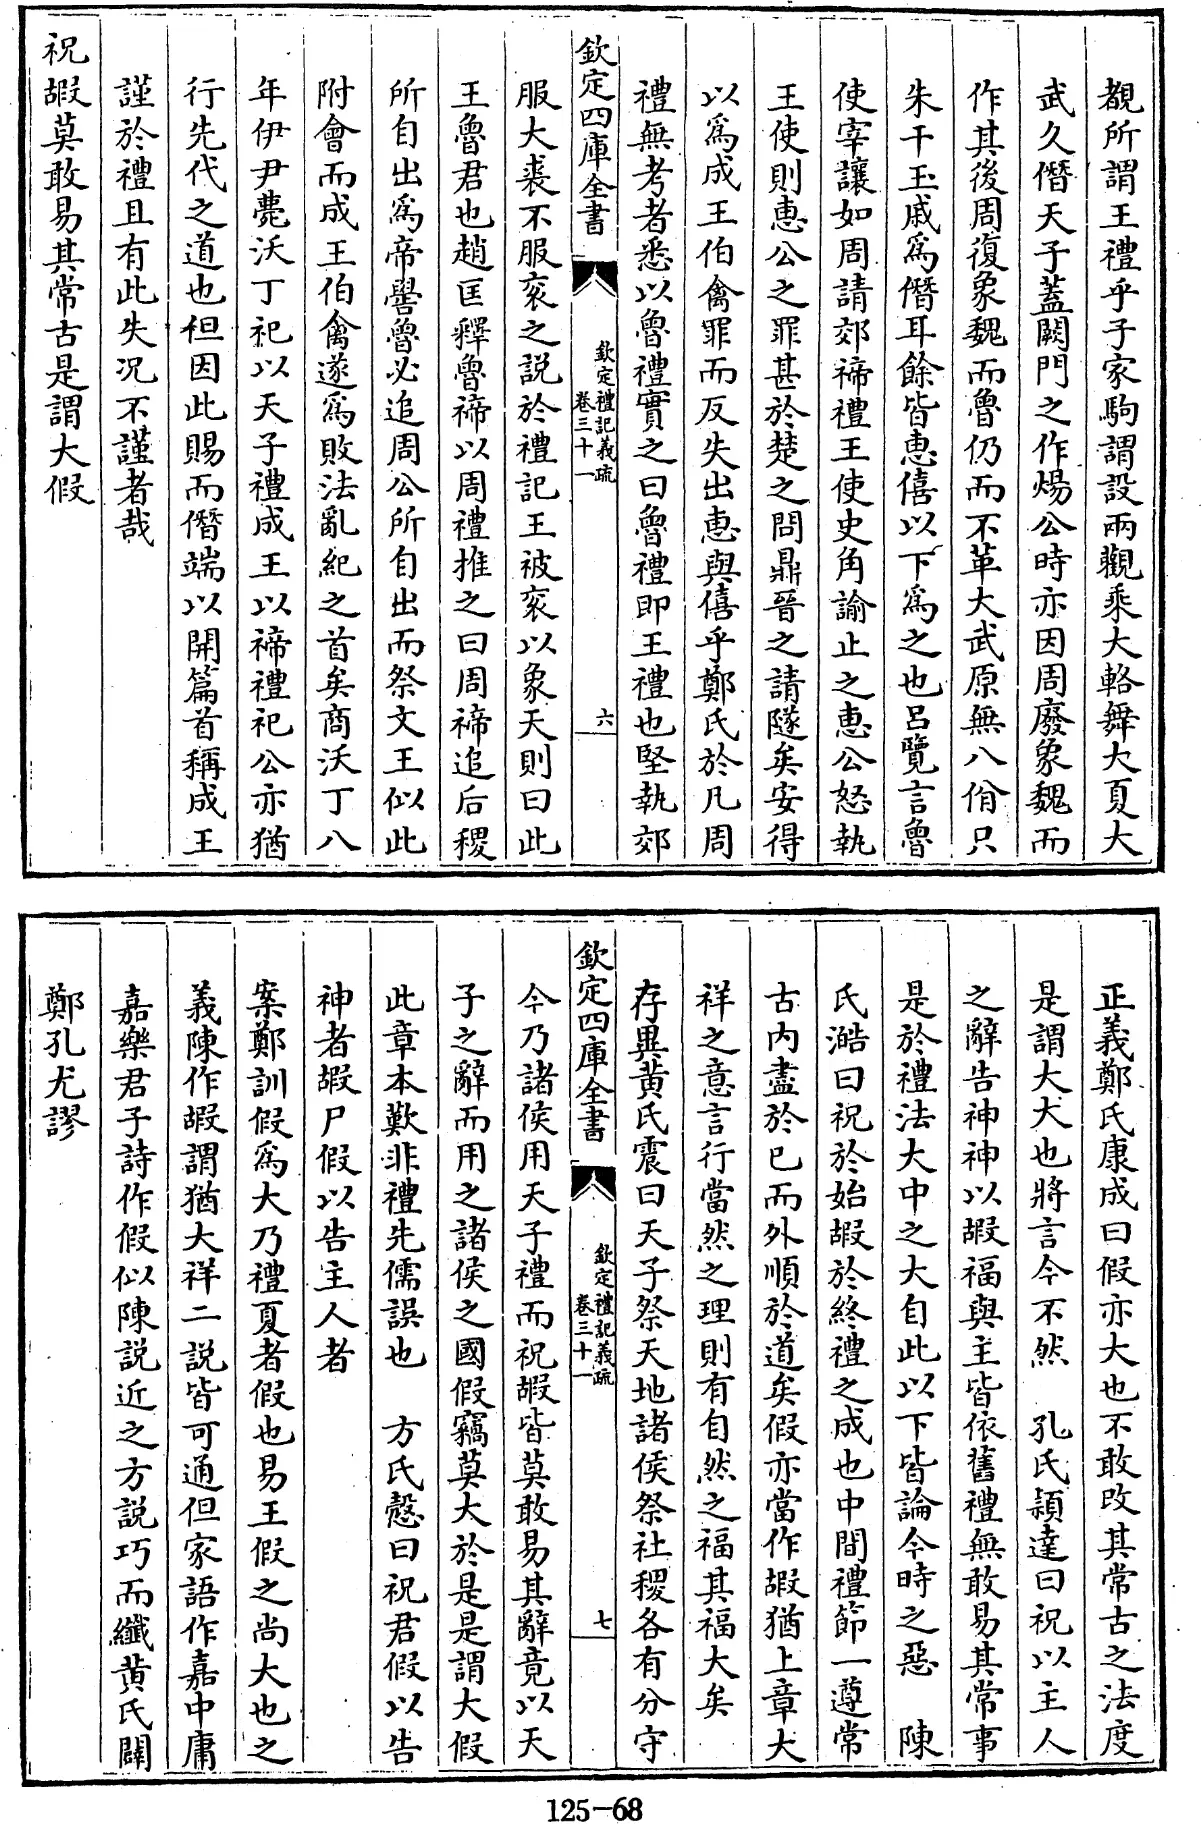 覩所謂王禮乎子家駒謂設兩觀乘大輅舞大夏大
武久僭天子蓋闕門之作煬公時亦因周廢象魏而
作其後周復象魏而魯仍而不革大武原無八佾只
朱干玉戚為僭耳餘皆惠僖以下為之也呂覽言魯
使宰讓如周請郊禘禮王使史角諭止之惠公怒執
王使則惠公之罪甚於楚之問鼎晉之請隧矣安得
以為成王伯禽罪而反失出惠與僖乎鄭氏於凡周
禮無考者悉以魯禮實之曰魯禮即王禮也堅執郊
欽定四庫全書
欽定禮記義疏
卷三十一
六
服大裘不服衮之説於禮記王被衮以象天則曰此
王魯君也趙匡釋魯禘以周禮推之曰周禘追后稷
所自出為帝嚳魯必追周公所自出而祭文王似此
附會而成王伯禽遂為敗法亂紀之首矣商沃丁八
年伊尹薨沃丁祀以天子禮成王以禘禮祀公亦猶
行先代之道也但因此賜而僭端以開篇首稱成王
謹於禮且有此失况不謹者哉
祝嘏莫敢易其常古是謂大假
正義鄭氏康成曰假亦大也不敢改其常古之法度
是謂大大也將言今不然　孔氏穎達曰祝以主人
之辭告神神以嘏福與主皆依舊禮無敢易其常事
是於禮法大中之大自此以下皆論今時之惡　陳
氏澔曰祝於始嘏於終禮之成也中間禮節一遵常
古内盡於己而外順於道矣假亦當作嘏猶上章大
祥之意言行當然之理則有自然之福其福大矣
存異黄氏震曰天子祭天地諸侯祭社稷各有分守
欽定四庫全書
欽定禮記義疏
卷三十一
七
今乃諸侯用天子禮而祝嘏皆莫敢易其辭竟以天
子之辭而用之諸侯之國假竊莫大於是是謂大假
此章本歎非禮先儒誤也　方氏慤曰祝君假以告
神者嘏尸假以告主人者
案鄭訓假為大乃禮夏者假也易王假之尚大也之
義陳作嘏謂猶大祥二説皆可通但家語作嘉中庸
嘉樂君子詩作假似陳説近之方説巧而纖黄氏闢
鄭孔尤謬
125-68